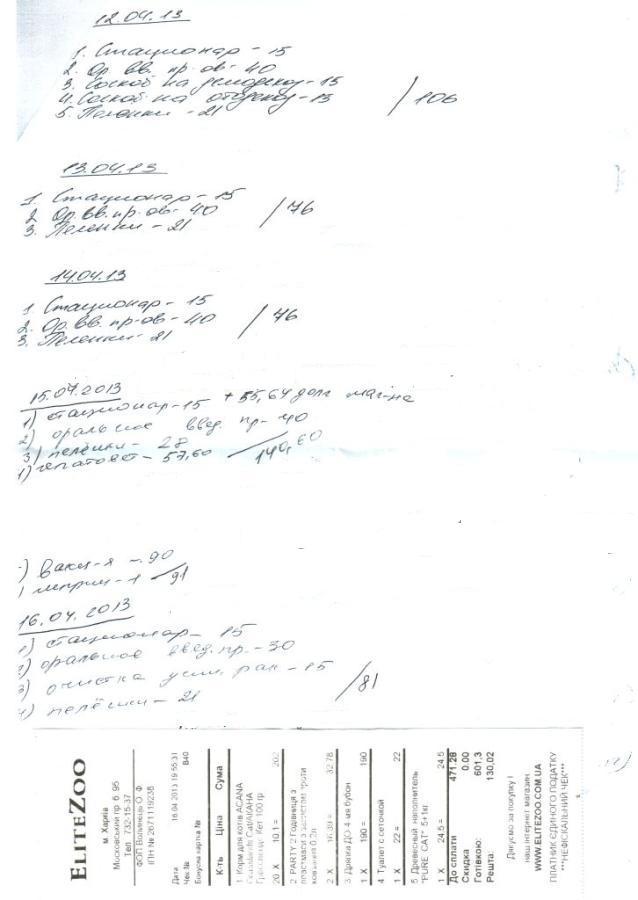 12.04.13
1. Стационар - 15
2. Ор. вв. пр-ов - 40
3. Соскоб на демодекоз - 15
4. Соскоб на отодекоз - 15
5. Пеленки - 21
/106
13.04.13
1. Стационар - 15
2. Ор. вв. пр-ов - 40
3. Пеленки - 21
/76
14.04.13
1. Стационар - 15
2. Ор. вв. пр-ов - 40
3. Пеленки - 21
/76
15.04.2013
1) стационар - 15 + 55,64 долг маг-на
2) оральное введ. пр - 40
3) пелёнки - 28
4) гепатовет - 57,60
/140,60
) вакц-я - 90
) шприц - 1
/91
16.04.2013
1) стационар - 15
2) оральное введ. пр. - 30
3) очистка ушн. рак. - 15
4) пелёнки - 21
/81
ELITEZOO
м. Харків
Московський пр. б. 95
Тел. 732-15-37
ФОП Волинець О. Ф.
ІПН № 2671119238
Дата 16.04.2013 19:55:31
Чек № 840
Бонусна картка №
К-ть Ціна Сума
1 Корм для котів ACANA
20 X 10.1 = 202
2 PARTY 2 Годівниця з
2 X 16.39 = 32.78
3 Дряпка ДО-4 мя бубон
1 X 190 = 190
4 Туалет с сеточкой
1 X 22 = 22
5 Древесный наполнитель
"PURE CAT" 5+1кг
1 X 24.5 = 24.5
До сплати 471.28
Скидка 0.00
Готівкою: 601.3
Решта: 130.02
Дякуємо за покупку !
наш інтернет магазин
WWW.ELITEZOO.COM.UA
ПЛАТНИК ЄДИНОГО ПОДАТКУ
***НЕФІСКАЛЬНИЙ ЧЕК***